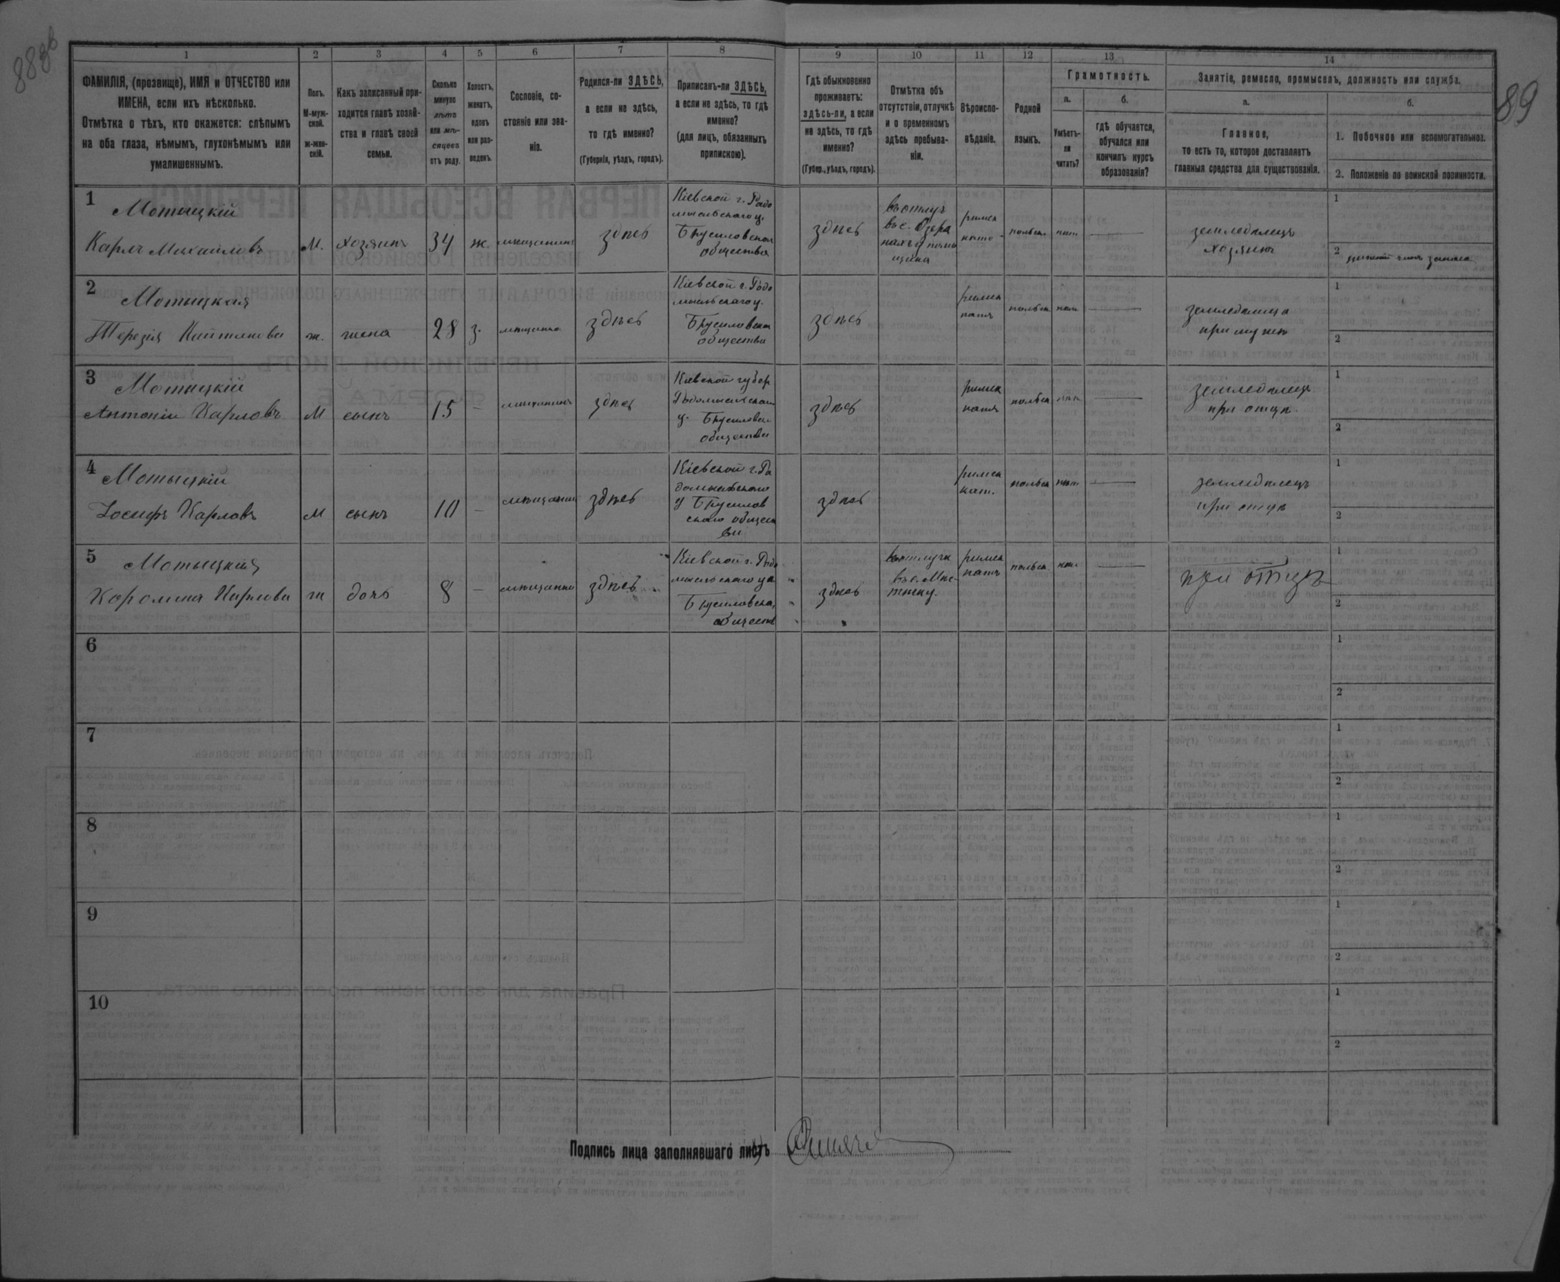 88об
89
1
2
3
4
5
6
7
8
9
10
11
12
13
14
ФАМИЛІЯ, (прозвище), ИМЯ и ОТЧЕСТВО или
ИМЕНА, если ихъ нѣсколько.
Отмѣтка о тѣхъ, кто окажется: слѣпымъ
на оба глаза, нѣмымъ, глухонѣмымъ или
умалишеннымъ.
Полъ.
М-муж-
ской.
ж-жен-
скій.
Какъ записанный при-
ходится главѣ хозяй-
ства и главѣ своей
семьи.
Сколько
минуло
лѣтъ
или мѣ-
сяцевъ
отъ роду.
Холостъ,
женатъ,
вдовъ
или раз-
веденъ.
Сословіе, со-
стояніе или зва-
ніе.
Родился-ли ЗДѢСЬ,
а если не здѣсь,
то гдѣ именно?
(Губернія, уѣздъ, городъ).
Приписанъ-ли ЗДѢСЬ,
а если не здѣсь, то гдѣ
именно?
(для лицъ, обязанныхъ
припискою).
Гдѣ обыкновенно
проживаетъ:
здѣсь-ли, а если
не здѣсь, то гдѣ
именно?
(Губер., уѣздъ, городъ).
Отмѣтка объ
отсутствіи, отлучкѣ
и о временномъ
здѣсь пребыва-
ніи.
Вѣроиспо-
вѣданіе.
Родной
языкъ.
Грамотность.
а.
б.
Умѣетъ-
ли
читать?
гдѣ обучается,
обучался или
кончилъ курсъ
образованія?
Занятіе, ремесло, промыселъ, должность или служба.
а.
б.
Главное,
то есть то, которое доставляетъ
главныя средства для существованія.
1. Побочное или вспомогательное.
2. Положеніе по воинской повинности.
1
Мотыцкій
Карлъ Михайловъ
М.
хозяинъ
34
ж.
мѣщанинъ
здѣсь
Кіевской г. Радо
мысльскаго у.
Брусиловскаго
общества
здѣсь
римск
като
польск
нѣт
земледѣлецъ
хозяинъ
1
2
2
Мотыцкая
ж.
жена
28
з.
мѣщанка
здѣсь
Кіевской г. Радо
мысльскаго у.
Брусиловск
общества
здѣсь
римск
катъ
польск
земледѣлица
при мужѣ
1
2
3
Мотыцкій
Антоній Карловъ
М
сынъ
15
—
мѣщанинъ
здѣсь
Кіевской губер
Радомысльскаго
у. Брусиловск
общества
здѣсь
римск
катъ
польск
—
земледѣлец
при отцѣ
1
2
4
Мотыцкій
Іосифъ Карловъ
М
сынъ
10
—
мѣщанин
здѣсь
Кіевской г. Ра
домысльскаго
у Брусилов
скаго общест
ва
здѣсь
римск
кат.
польск
нѣт
—
земледѣлецъ
при отцѣ
1
2
5
Мотыцкая
Каролина Карлова
ж
дочь
8
—
мѣщанка
здѣсь
Кіевской г. Радо
мысльскаго уѣ
Брусиловска
обществ
здѣсь
римск
катъ
польск
—
при отцѣ
1
2
6
1
2
7
1
2
8
1
2
9
1
2
10
1
2
Подпись лица заполнявшаго листъ